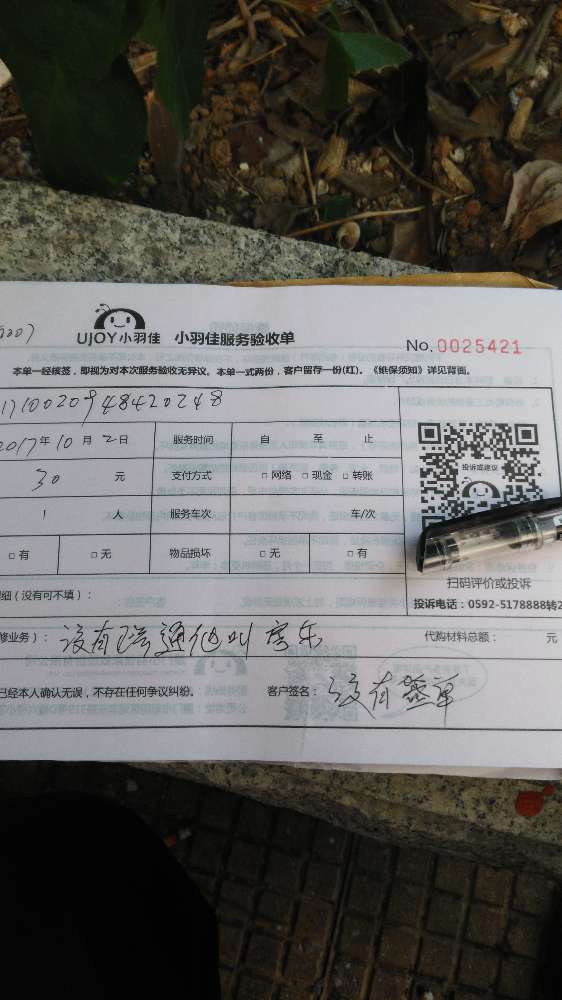 UJOY小羽佳 小羽佳服务验收单
No. 0025421
本单一经核签，即视为对本次服务验收无异议。本单一式两份，客户留存一份(红)。《维保须知》详见背面。
1710020948420248
2017年10月2日 服务时间 自 至 止
30 元 支付方式 □网络 □现金 □转账
1 人 服务车次 车/次
□有 □无 物品损坏 □无 □有
投诉或建议
扫码评价或投诉
投诉电话：0592-5178888转2
细（没有可不填）：
修业务）： 没有 通他叫 代购材料总额： 元
已经本人确认无误，不存在任何争议纠纷。 客户签名： 没有签单